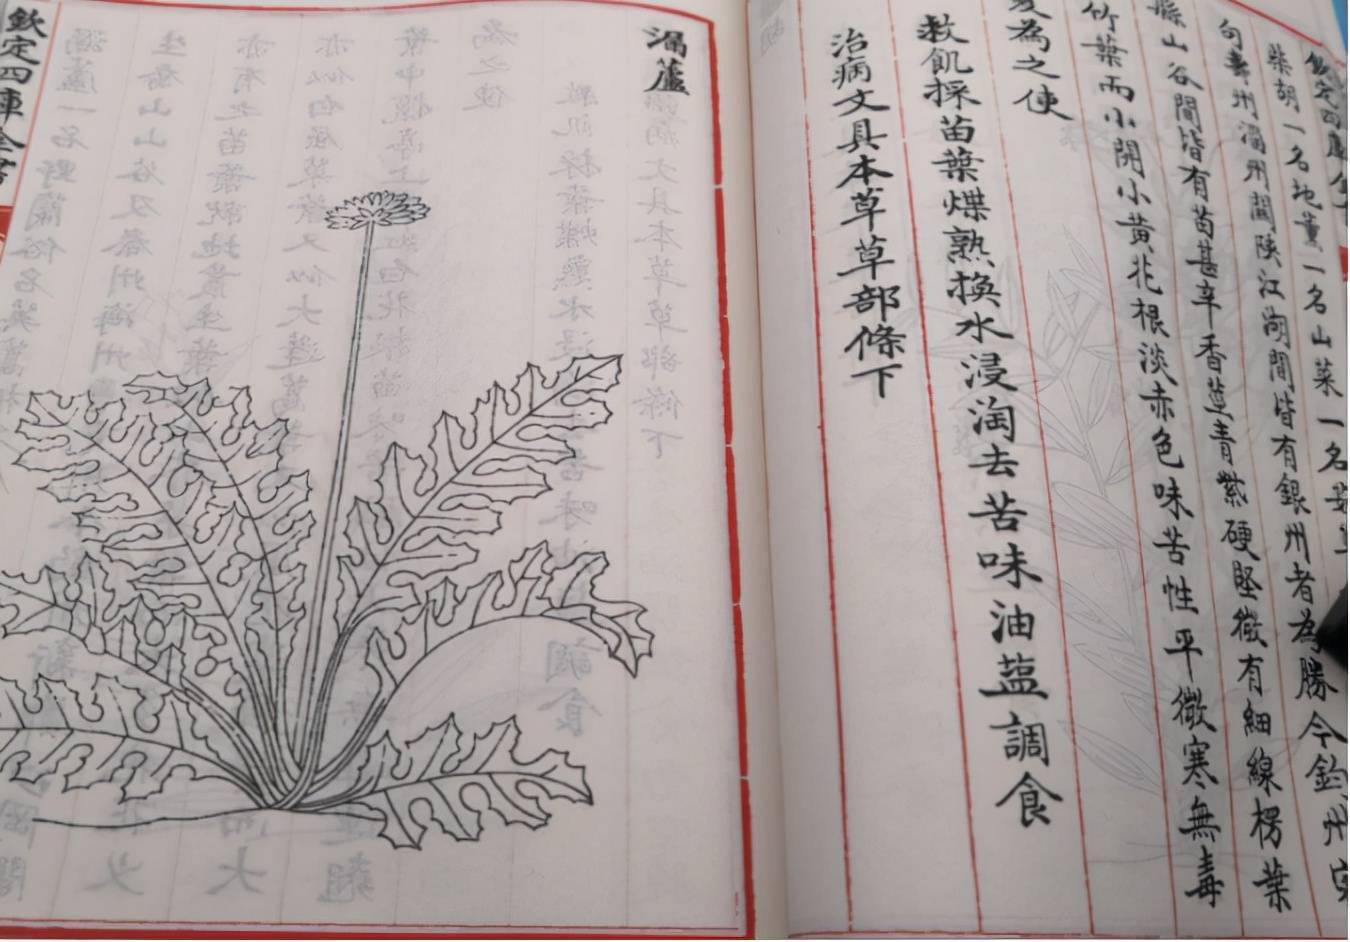 柴胡一名地薰一名山菜一名
句壽州淄州關陝江湖間皆有銀州者為勝今鈞州
縣山谷間皆有苗甚辛香莖青紫硬堅微有細線楞葉
竹葉而小開小黃花根淡赤色味苦性平微寒無毒
為之使
救飢採苗葉煠熟換水浸淘去苦味油鹽調食
治病文具本草草部條下
漏蘆
欽定四庫全書